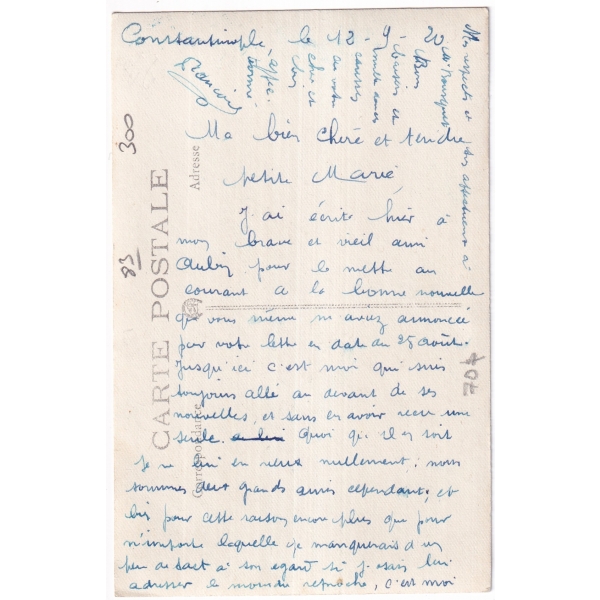 Constantinople, le 12-9-20
Ma bien chère et tendre
petite Marie,
J'ai écrite hier à
mon brave et vieil ami
Aubin pour le mettre au
courant a la bonne nouvelle
que vous même m'avez annoncée
par votre lettre en date du 25 août.
Jusqu'ici c'est moi qui suis
toujours allé au devant de ses
nouvelles, et sans en avoir reçu une
seule. Quoi qu'il en soit
Je ne lui en veux nullement; nous
sommes deux grands amis cependant, et
bien pour cette raison encore plus que pour
n'importe laquelle je manquerais d'un
peu de tact à son égard si j'osais lui
adresser le moindre reproche, c'est moi
Mes respects et
affectueux à
Mr Bousquet
Bons
baisers et
mille douces
caresses
de votre
cher et
François
CARTE POSTALE
Correspondance
Adresse
300
83
704